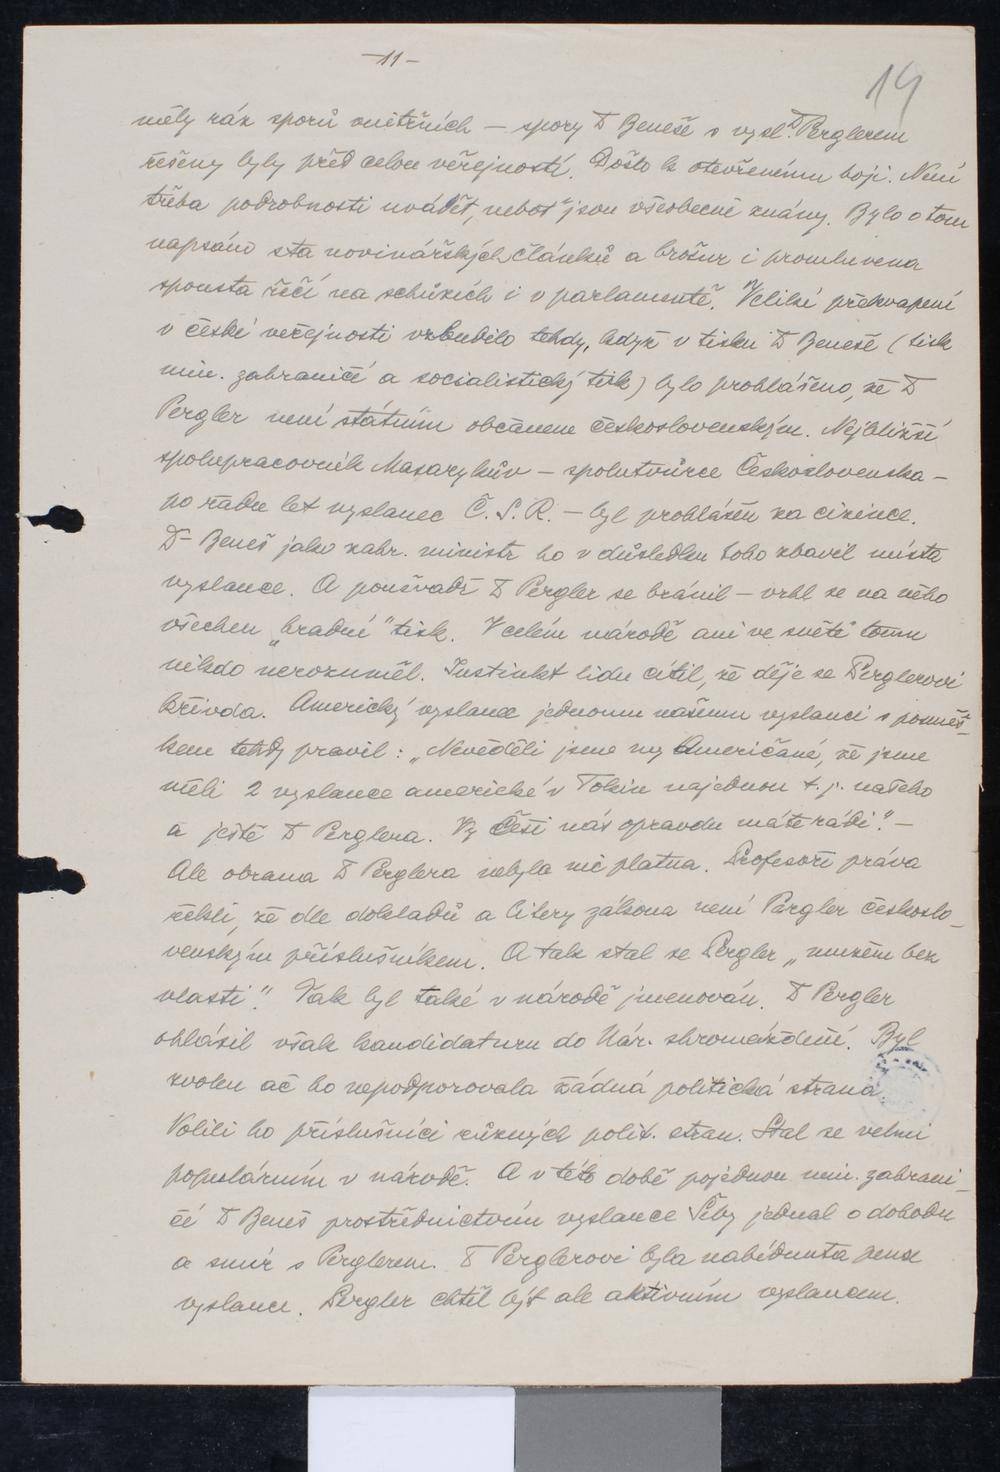 -11-
14
měly ráz sporů vnitřních – spory Dr Beneše s vysl. Dr Perglerem
řešeny byly před celou veřejností. Došlo k otevřenému boji. Není
třeba podrobnosti uvádět, neboť jsou všeobecně známy. Bylo o tom
napsáno sta novinářských článků a brožur i promluvena
spousta řečí na schůzích i v parlamentě. Veliké překvapení
v české veřejnosti vzbudilo tehdy, když v tisku Dr Beneše (tisk
min. zahraničí a socialistický tisk) bylo prohlášeno, že Dr
Pergler není státním občanem československým. Nejbližší
spolupracovník Masarykův – spolutvůrce Československa –
po řadu let vyslanec Č.S.R. – byl prohlášen za cizince.
Dr Beneš jako zahr. ministr ho v důsledku toho zbavil místa
vyslance. A poněvadž Dr Pergler se bránil – vrhl se na něho
všechen „hradní" tisk. V celém národě ani ve světě tomu
nikdo nerozuměl. Instinkt lidu cítil, že děje se Perglerovi
křivda. Americký vyslanec jednomu našemu vyslanci s posměš-
kem tehdy pravil: „Nevěděli jsme my Američané, že jsme
měli 2 vyslance americké v Tokiu najednou t.j. našeho
a ještě Dr Perglera. Vy Češi nás opravdu máte rádi". –
Ale obrana Dr Perglera nebyla nic platna. Profesoři práva
řekli, že dle dokladů a litery zákona není Pergler českoslo-
venským příslušníkem. A tak stal se Pergler „mužem bez
vlasti". Tak byl také v národě jmenován. Dr Pergler
ohlásil však kandidaturu do Nár. shromáždění. Byl
zvolen ač ho nepodporovala žádná politická strana.
Volili ho příslušníci různých polit. stran. Stal se velmi
populárním v národě. A v této době pojednou min. zahrani-
čí Dr Beneš prostřednictvím vyslance Šeby jednal o dohodu
a smír s Perglerem. Dr Perglerovi byla nabídnuta penze
vyslance. Pergler chtěl být ale aktivním vyslancem.